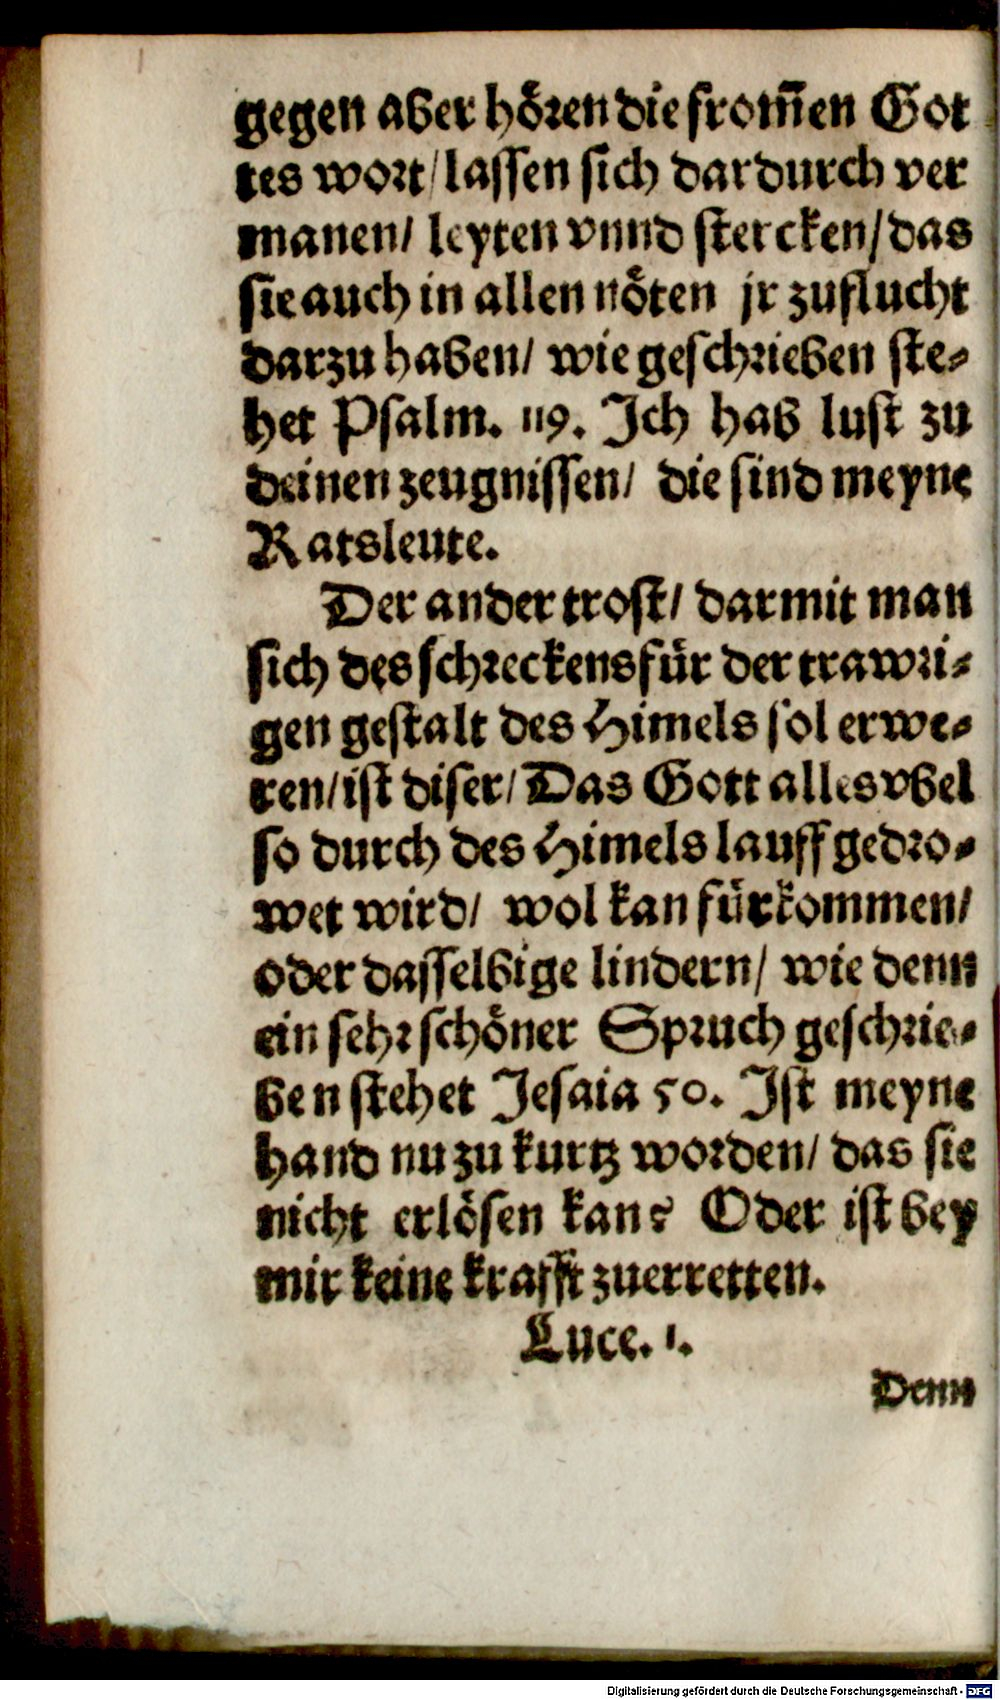 gegen aber hören die from̃en Got
tes wort / lassen sich dardurch ver
manen / leyten vnnd stercken / das
sie auch in allen nöten jr zuflucht
darzu haben / wie geschrieben ste⸗
het Psalm. 119. Ich hab lust zu
deinen zeugnissen / die sind meyne
Ratsleute.
Der ander trost / darmit man
sich des schreckens für der trawri⸗
gen gestalt des Himels sol erwe⸗
ren / ist diser / Das Gott alles vbel
so durch des Himels lauff gedro⸗
wet wird / wol kan fürkommen /
oder dasselbige lindern / wie denn
ein sehr schöner Spruch geschrie⸗
ben stehet Jesaia 50. Ist meyne
hand nu zu kurtz worden / das sie
nicht erlösen kan? Oder ist bey
mir keine krafft zuerretten.
Luce. 1.
Denn
Digitalisierung gefördert durch die Deutsche Forschungsgemeinschaft - DFG